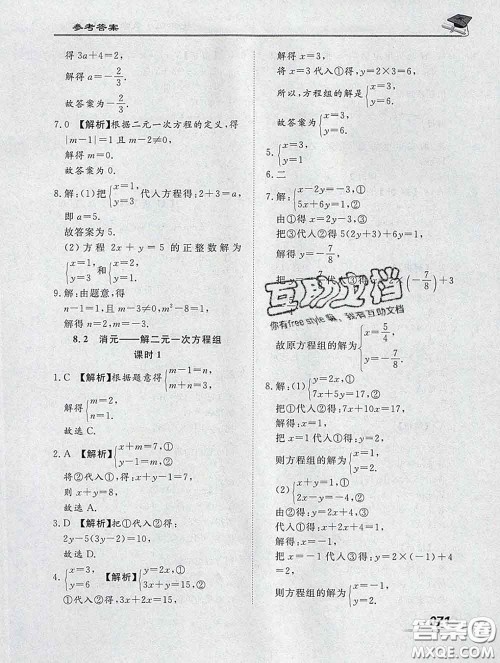 参考答案
得3a+4=2,
解得a=-2/3.
故答案为-2/3.
7.0 【解析】根据二元一次方程的定义,得
|m-1|=1且m-2≠0,
解得m=0.
8.解:(1)把{x=1, y=3}代人方程得:2+3=a,
即a=5.
故答案为5.
(2)方程2x+y=5的正整数解为
{x=1, y=3}和{x=2, y=1.
9.解:由题意,得
n-1=1,且m-3≠0,m²-8=1,
解得n=2,m=-3.
8.2 消元——解二元一次方程组
课时1
1.C 【解析】根据题意得{m-1=n, m+n=3,
解得:{m=2, n=1.
故选C.
2.A 【解析】{x+m=7,① y-1=m,②
将②代入①得:x+y-1=7,
则x+y=8.
故选A.
3.D 【解析】把①代入②得:
2y-5(3y-2)=10.
故选D.
4.{x=3, y=6 【解析】{y=2x,① 3x+y=15,②
①代入②得,3x+2x=15,
解得x=3,
将x=3代入①得,y=2×3=6,
所以,方程组的解是{x=3, y=6.
故答案为{x=3, y=6.
5.{x=3, y=1
6.二
7.解:{x-2y=-3,① 5x+6y=1,②
由①得x=2y-3③
把③代人②得5(2y+3)+6y=1
解得y=-7/8
故原方程组的解为{x=5/4, y=-7/8.
8.解:(1){y=2x,① 7x+5y=17,②
①代入②得:7x+10x=17,
解得:x=1,
把x=1代入①得:y=2,
则方程组的解为{x=1, y=2.
由②得:y=2x+4③
解得:x=-1
把x=-1代入③得:y=2×(-1)+4
=2
则方程组的解为{x=-1, y=2.
互助文档
071
答案圈
MXQE.COM